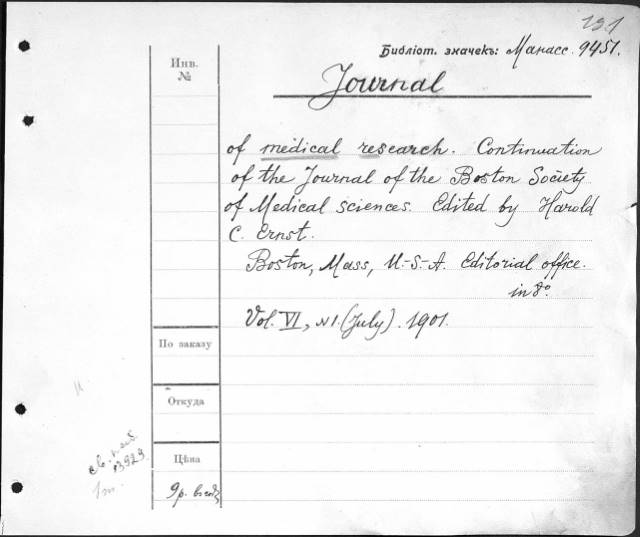 191
Библіот. значекъ: Манасс. 9451.
Инв.
№
Journal
of medical research. Continuation
of the Journal of the Boston Society
of Medical sciences. Edited by Harold
C. Ernst.
Boston, Mass, U.-S.-A. Editorial office.
in 8º.
Vol. VI, N1. (July). 1901.
По заказу
Откуда
13923
Цѣна
1 т.
9р.